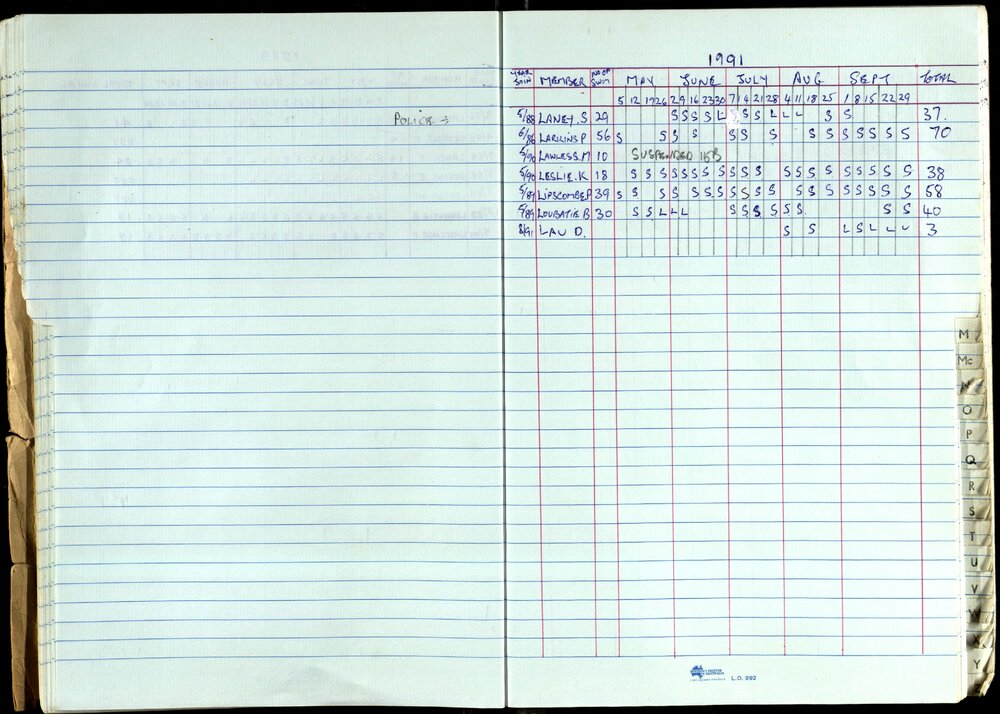 1991
YEAR JOIN MEMBER NO OF SWIM MAY JUNE JULY AUG SEPT TOTAL
5 12 19 26 2 9 16 23 30 7 14 21 28 4 11 18 25 1 8 15 22 29
POLICE → 5/88 LANEY.S 29 S S S S L S S L L L S S 37.
LARKINS P 56 S S S S S S S S S S S S S S 70
5/90 LAWLESS.M 10 SUSPENDED 15B
5/90 LESLIE.K 18 S S S S S S S S S S S S S S S S S S S S 38
LIPSCOMBE P 39 S S S S S S S S S S S S S S S S S S S 58
5/89 LOUBATIE B 30 S S L L L S S S S S S S S 40
8/91 LAU D. S S L S L L L 3
M
Mc
N
O
P
Q
R
S
T
U
V
W
X
Y
L.O. 992